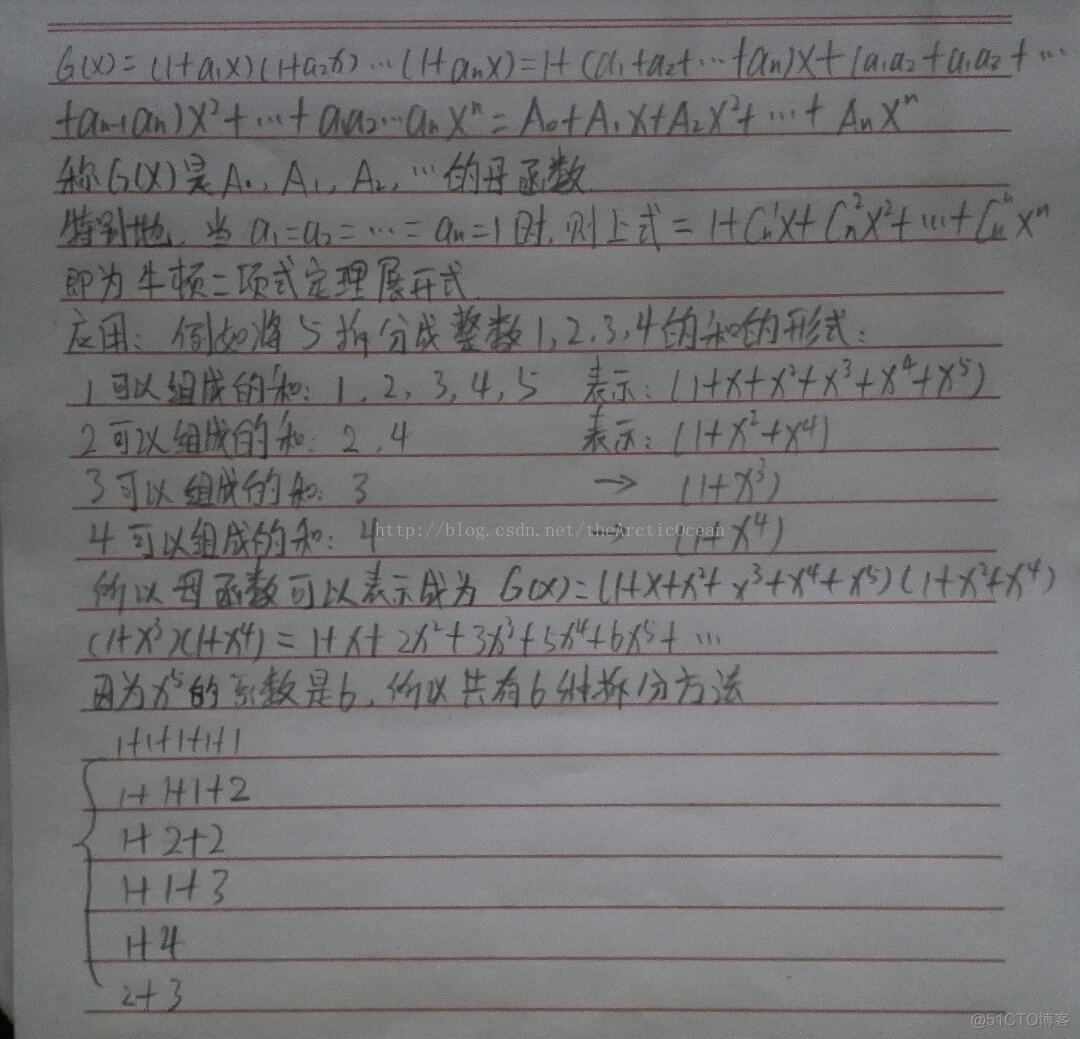 G(x)=(1+a₁x)(1+a₂x)…(1+aₙx)=1+(a₁+a₂+…+aₙ)x+(a₁a₂+a₁a₂+…
+aₙ₋₁aₙ)x²+…+a₁a₂…aₙxⁿ=A₀+A₁x+A₂x²+…+Aₙxⁿ
称G(x)是A₀,A₁,A₂,…的母函数
特别地,当a₁=a₂=…=aₙ=1时,则上式=1+Cₙ¹x+Cₙ²x²+…+Cₙⁿxⁿ
即为牛顿二项式定理展开式
应用:例如将5拆分成整数1,2,3,4的和的形式:
1可以组成的和:1,2,3,4,5 表示:(1+x+x²+x³+x⁴+x⁵)
2可以组成的和:2,4 表示:(1+x²+x⁴)
3可以组成的和:3 → (1+x³)
http://blog.csdn.net/theArcticOcean
4可以组成的和:4 → (1+x⁴)
所以母函数可以表示成为 G(x)=(1+x+x²+x³+x⁴+x⁵)(1+x²+x⁴)
(1+x³)(1+x⁴)=1+x+2x²+3x³+5x⁴+6x⁵+…
因为x⁵的系数是6,所以共有6种拆分方法
1+1+1+1+1
1+1+1+2
1+2+2
1+1+3
1+4
2+3
@51CTO博客